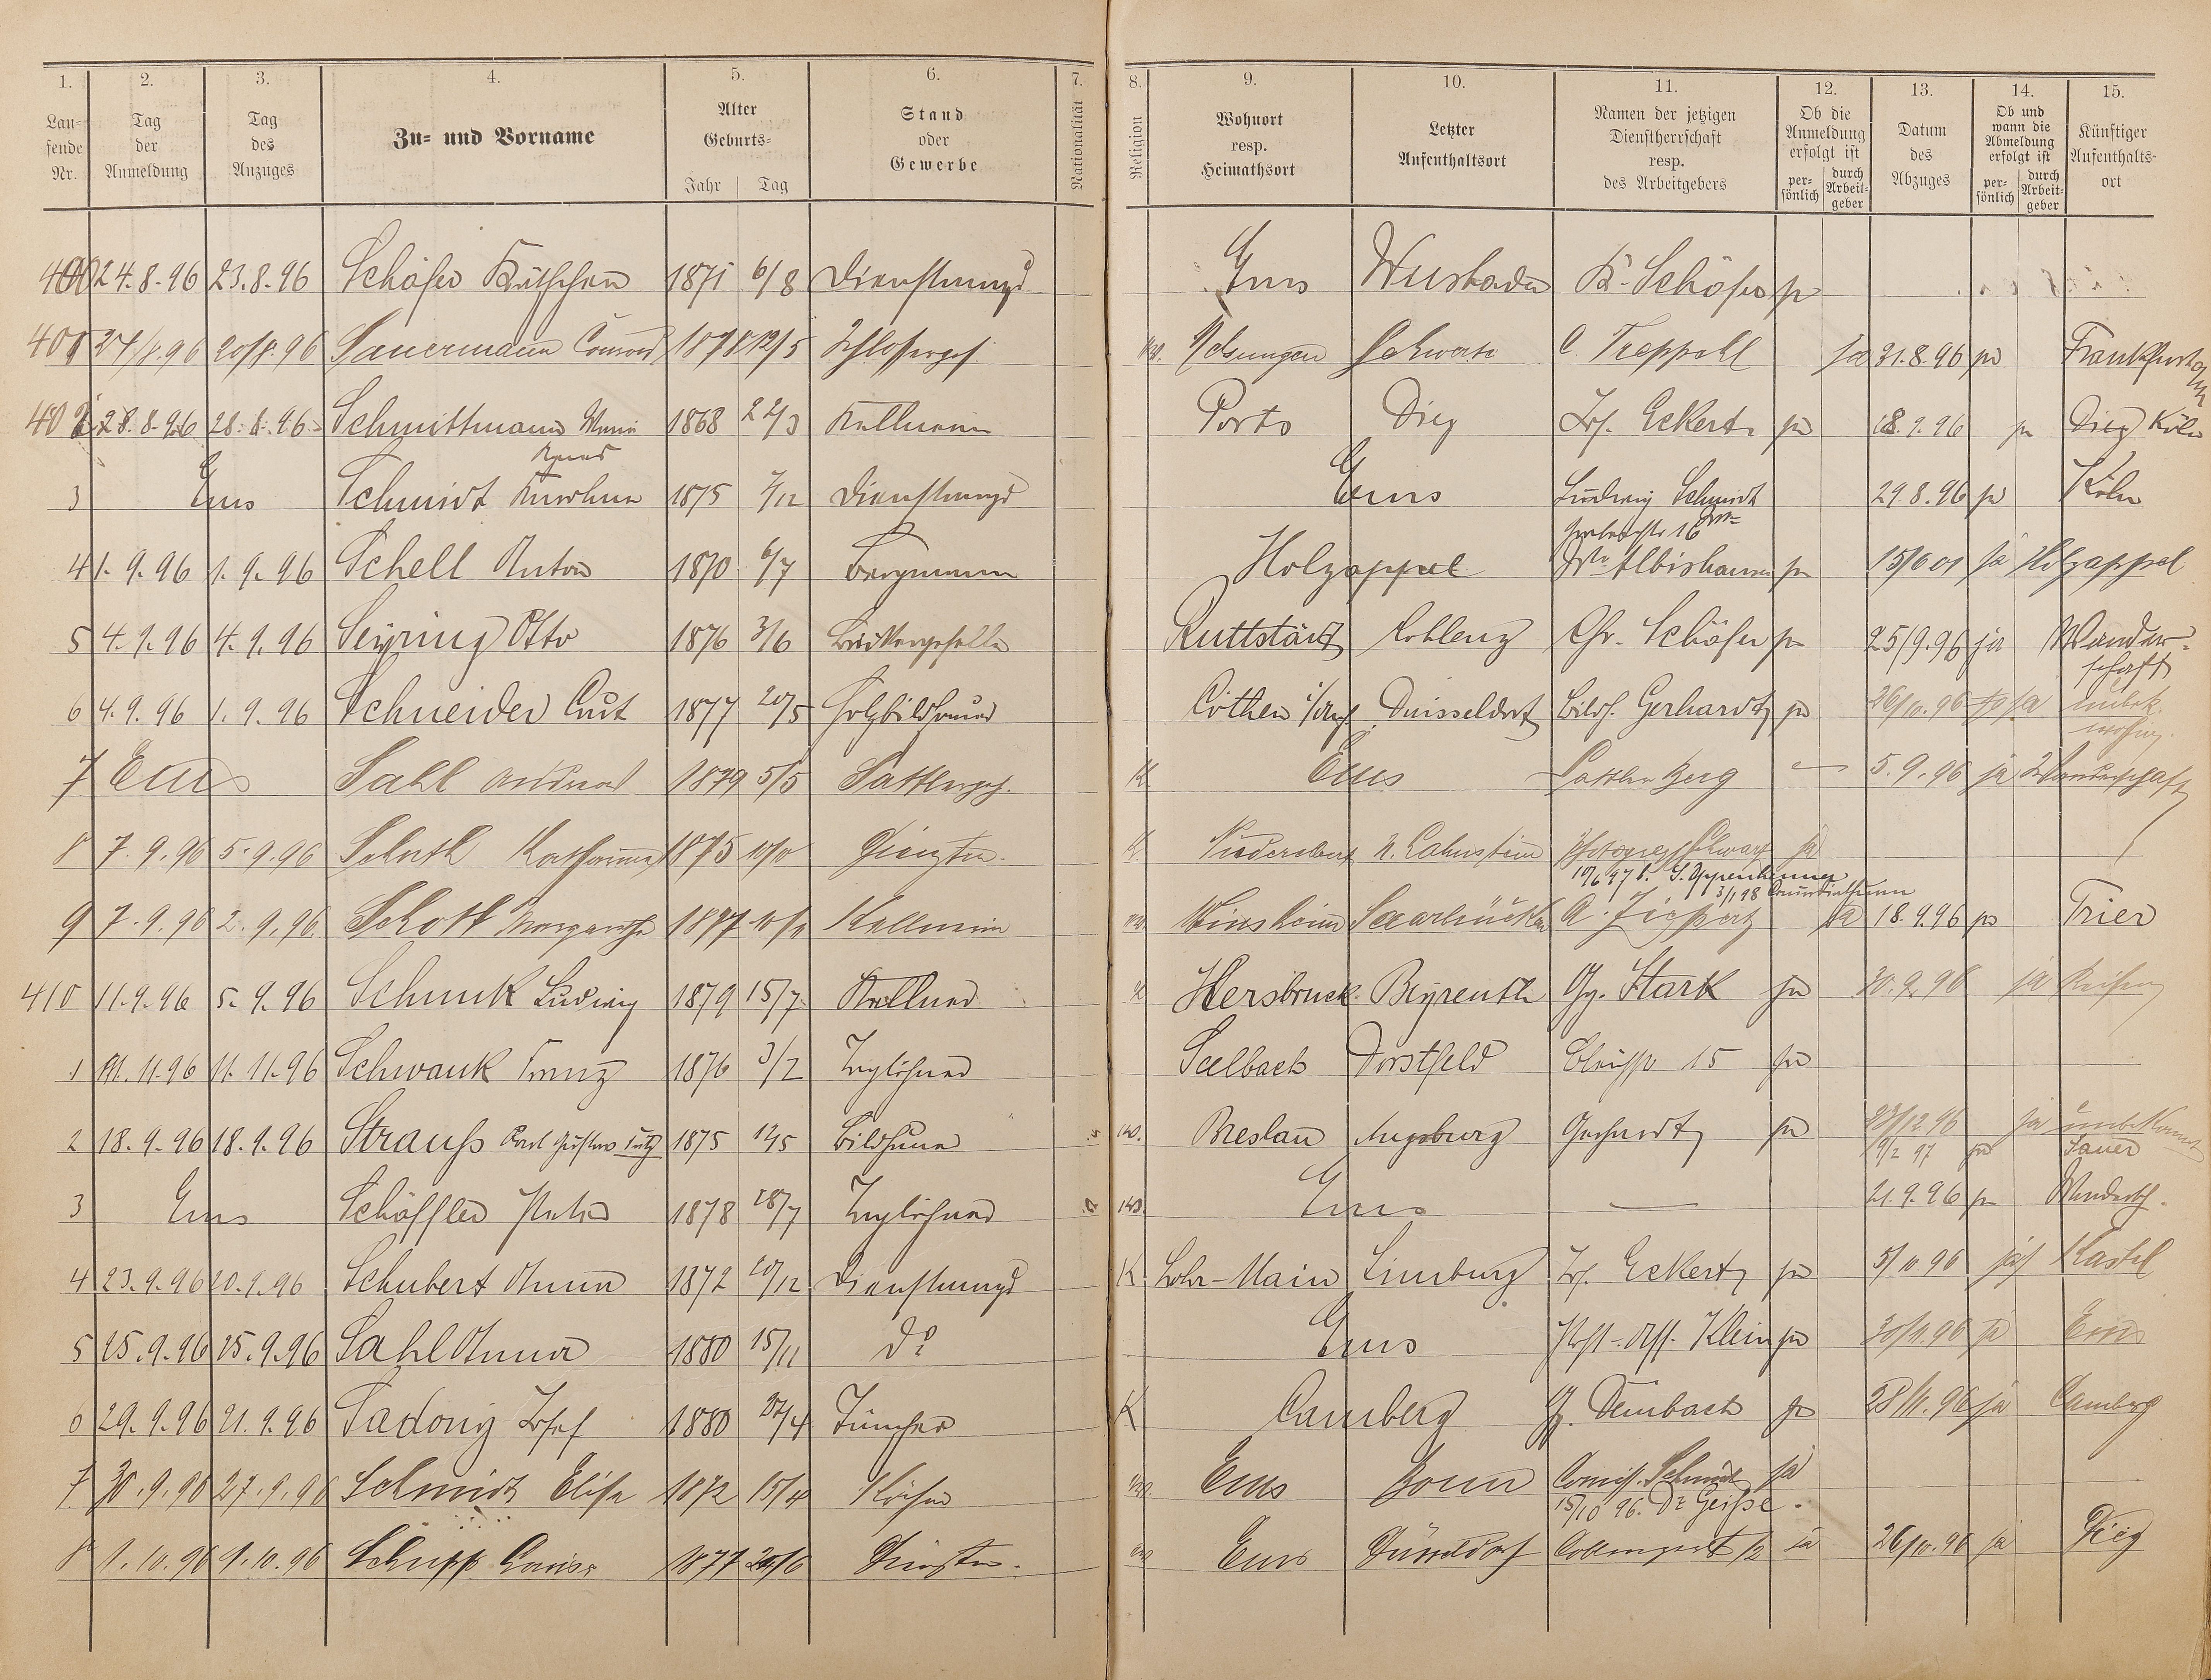 1. 2. 3. 4. 5. 6. 7. 8. 9. 10. 11. 12. 13. 14. 15.
Lau-
fende
Nr.
Tag
der
Anmeldung
Tag
des
Anzuges
Zu- und Vorname
Alter
Geburts-
Jahr Tag
Stand
oder
Gewerbe
Nationalität
Religion
Wohnort
resp.
Heimathsort
Letzter
Aufenthaltsort
Namen der jetzigen
Dienstherrschaft
resp.
des Arbeitgebers
Ob die
Anmeldung
erfolgt ist
per-
sönlich
durch
Arbeit-
geber
Datum
des
Abzuges
Ob und
wann die
Abmeldung
erfolgt ist
per-
sönlich
durch
Arbeit-
geber
Künftiger
Aufenthalts-
ort
400 24.8.96 23.8.96 Schäfer Käthchen 1871 6/8 Dienstmagd Ems Wiesbaden K. Schäfer ja
401 27/8.96 20/8.96 Sauermann Conrad 1878 12/5 Schlosserges. Melsungen C. Treppehl ja 31.8.96 ja Frankfurt a/M
402 28.8.96 28.8.96 Schmittmann Maria 1868 22/3 Kellnerin Porto Diez Jos. Eckert ja 18.9.96 ja Diez Köln
3 Ems Schmidt 1875 7/12 Dienstmagd Ems Ludwig Schmidt 29.8.96 ja Köln
4 1.9.96 1.9.96 Schell Anton 1870 6/7 Bergmann Holzappel 16 Albishausen ja 15/6 01 ja Holzappel
5 4.9.96 4.9.96 Seyring Otto 1876 3/6 Bäckergeselle Ruttstädt Koblenz Chr. Schäfer ja 25/9.96 ja Wander-
schaft
6 4.9.96 1.9.96 Schneider Curt 1877 20/5 Holzbildhauer Cöthen i/Anh Duisseldorf Bildh. Gerhardt ja 26/10.96 ja unbek.
7 Ems Sahl Andreas 1879 5/5 Sattlerges. K. Ems Sattler Berg — 5.9.96 ja Wanderschaft
8 7.9.96 5.9.96 Katharina 1875 10/10 Dienstm. K. N. Lahnstein Photograph Schwarz ja
10/6 97 b. S. Oppenheimer
3/1 98
9 7.9.96 2.9.96 Schott Margarethe 1877 Kellnerin Winsheim Saarbrücken A. ja 18.9.96 ja Trier
410 11.9.96 5.9.96 Schunk Ludwig 1879 15/7 Kellner K Hersbruck Beyreuth Gg. Stark ja 30.9.96 ja Reisen
1 11.11.96 11.11.96 Schwank Franz 1876 3/2 Taglöhner Seelbach Dorstfeld 15 ja
2 18.9.96 18.9.96 Strauß Karl Gustav Lutz 1875 12/5 Bildhauer Breslau Augsburg Gerhardt ja 23/12.96 ja unbekannt
9/2 97 ja Jauer
3 Ems Schöffler Peter 1878 28/7 Taglöhner Ems — 21.9.96 ja Wandersch.
4 23.9.96 20.9.96 Schubert Anna 1872 20/12 Dienstmagd K Lohr-Main Limburg Jos. Eckert ja 5/10 96 ja Kastel
5 25.9.96 25.9.96 Sahl Anna 1880 15/11 do Ems Klein ja 30/11.96 ja Ems
6 29.9.96 21.9.96 Sadony Josef 1880 Tüncher K Camberg Deimbach ja 28/11.96 ja Camberg
7 30.9.96 27.9.96 Schmidt Elise 1872 15/4 Köchin Ems Bonn Comiss. Schmidt ja
15/10 96. Dr Geisse.
8 1.10.96 1.10.96 Schupp Louise 1877 24/6 Dienstm. Ems Düsseldorf ja 26/10.96 ja Diez